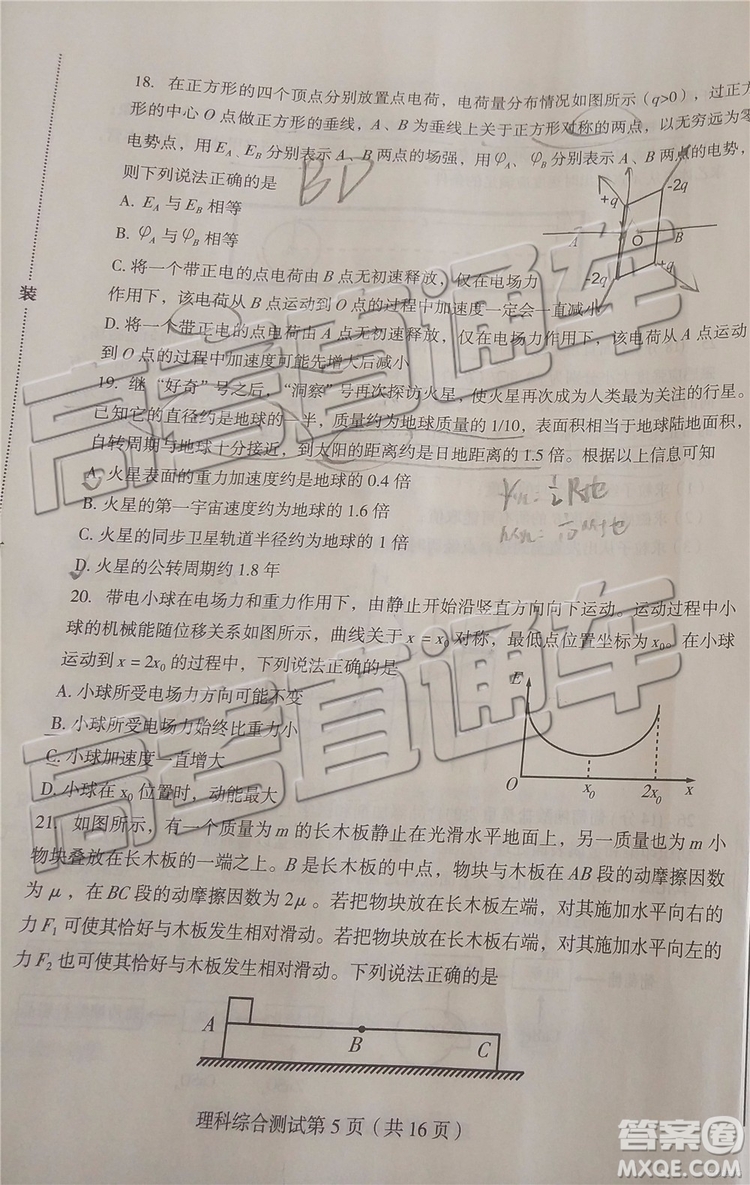 18. 在正方形的四个顶点分别放置点电荷，电荷量分布情况如图所示（q>0），过正方
形的中心 O 点做正方形的垂线，A、B 为垂线上关于正方形对称的两点，以无穷远为零
电势点，用 E_A、E_B 分别表示 A、B 两点的场强，用 φ_A、φ_B 分别表示 A、B 两点的电势，
则下列说法正确的是 BD
A. E_A 与 E_B 相等
B. φ_A 与 φ_B 相等
C. 将一个带正电的点电荷由 B 点无初速释放，仅在电场力
作用下，该电荷从 B 点运动到 O 点的过程中加速度一定会一直减小
D. 将一个带正电的点电荷由 A 点无初速释放，仅在电场力作用下，该电荷从 A 点运动
到 O 点的过程中加速度可能先增大后减小
+q
-2q
A
O
B
-2q
+q
装
19. 继“好奇”号之后，“洞察”号再次探访火星，使火星再次成为人类最为关注的行星。
已知它的直径约是地球的一半，质量约为地球质量的 1/10，表面积相当于地球陆地面积，
自转周期与地球十分接近，到太阳的距离约是日地距离的 1.5 倍。根据以上信息可知
A. 火星表面的重力加速度约是地球的 0.4 倍
B. 火星的第一宇宙速度约为地球的 1.6 倍
C. 火星的同步卫星轨道半径约为地球的 1 倍
D. 火星的公转周期约 1.8 年
20. 带电小球在电场力和重力作用下，由静止开始沿竖直方向向下运动。运动过程中小
球的机械能随位移关系如图所示，曲线关于 x = x₀ 对称，最低点位置坐标为 x₀。在小球
运动到 x = 2x₀ 的过程中，下列说法正确的是
A. 小球所受电场力方向可能不变
B. 小球所受电场力始终比重力小
C. 小球加速度一直增大
D. 小球在 x₀ 位置时，动能最大
E
O
x₀
2x₀
x
21. 如图所示，有一个质量为 m 的长木板静止在光滑水平地面上，另一质量也为 m 小
物块叠放在长木板的一端之上。B 是长木板的中点，物块与木板在 AB 段的动摩擦因数
为 μ，在 BC 段的动摩擦因数为 2μ。若把物块放在长木板左端，对其施加水平向右的
力 F₁ 可使其恰好与木板发生相对滑动。若把物块放在长木板右端，对其施加水平向左的
力 F₂ 也可使其恰好与木板发生相对滑动。下列说法正确的是
A
B
C
理科综合测试第 5 页（共 16 页）
高考直通车
高考直通车
答案圈
MXQE.COM